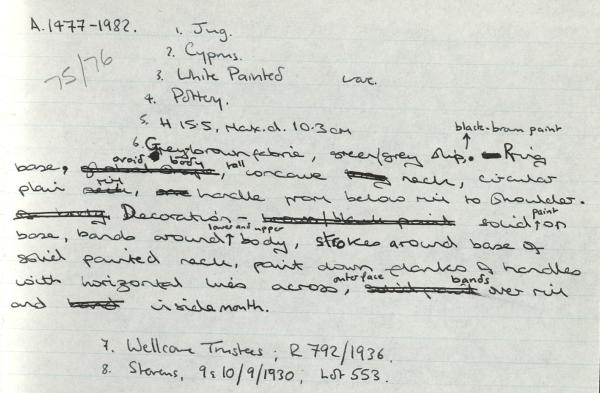 A.1977-1982.
1. Jug.
2. Cyprus.
75/76
3. White Painted ware.
4. Pottery.
5. H 15.5, Max.d. 10.3cm
black-brown paint
6. Grey-brown fabric, green/grey slip. Ring
base, ovoid body, tall concave neck, circular
plain rim, handle from below rim to shoulder.
Decoration - solid paint on
base, bands around lower and upper body, strokes around base of
solid painted neck, paint down flanks of handles
with horizontal lines across outer face, bands over rim
and inside mouth.
7. Wellcome Trustees; R 792/1936.
8. Stevens, 9 & 10/9/1930, Lot 553.